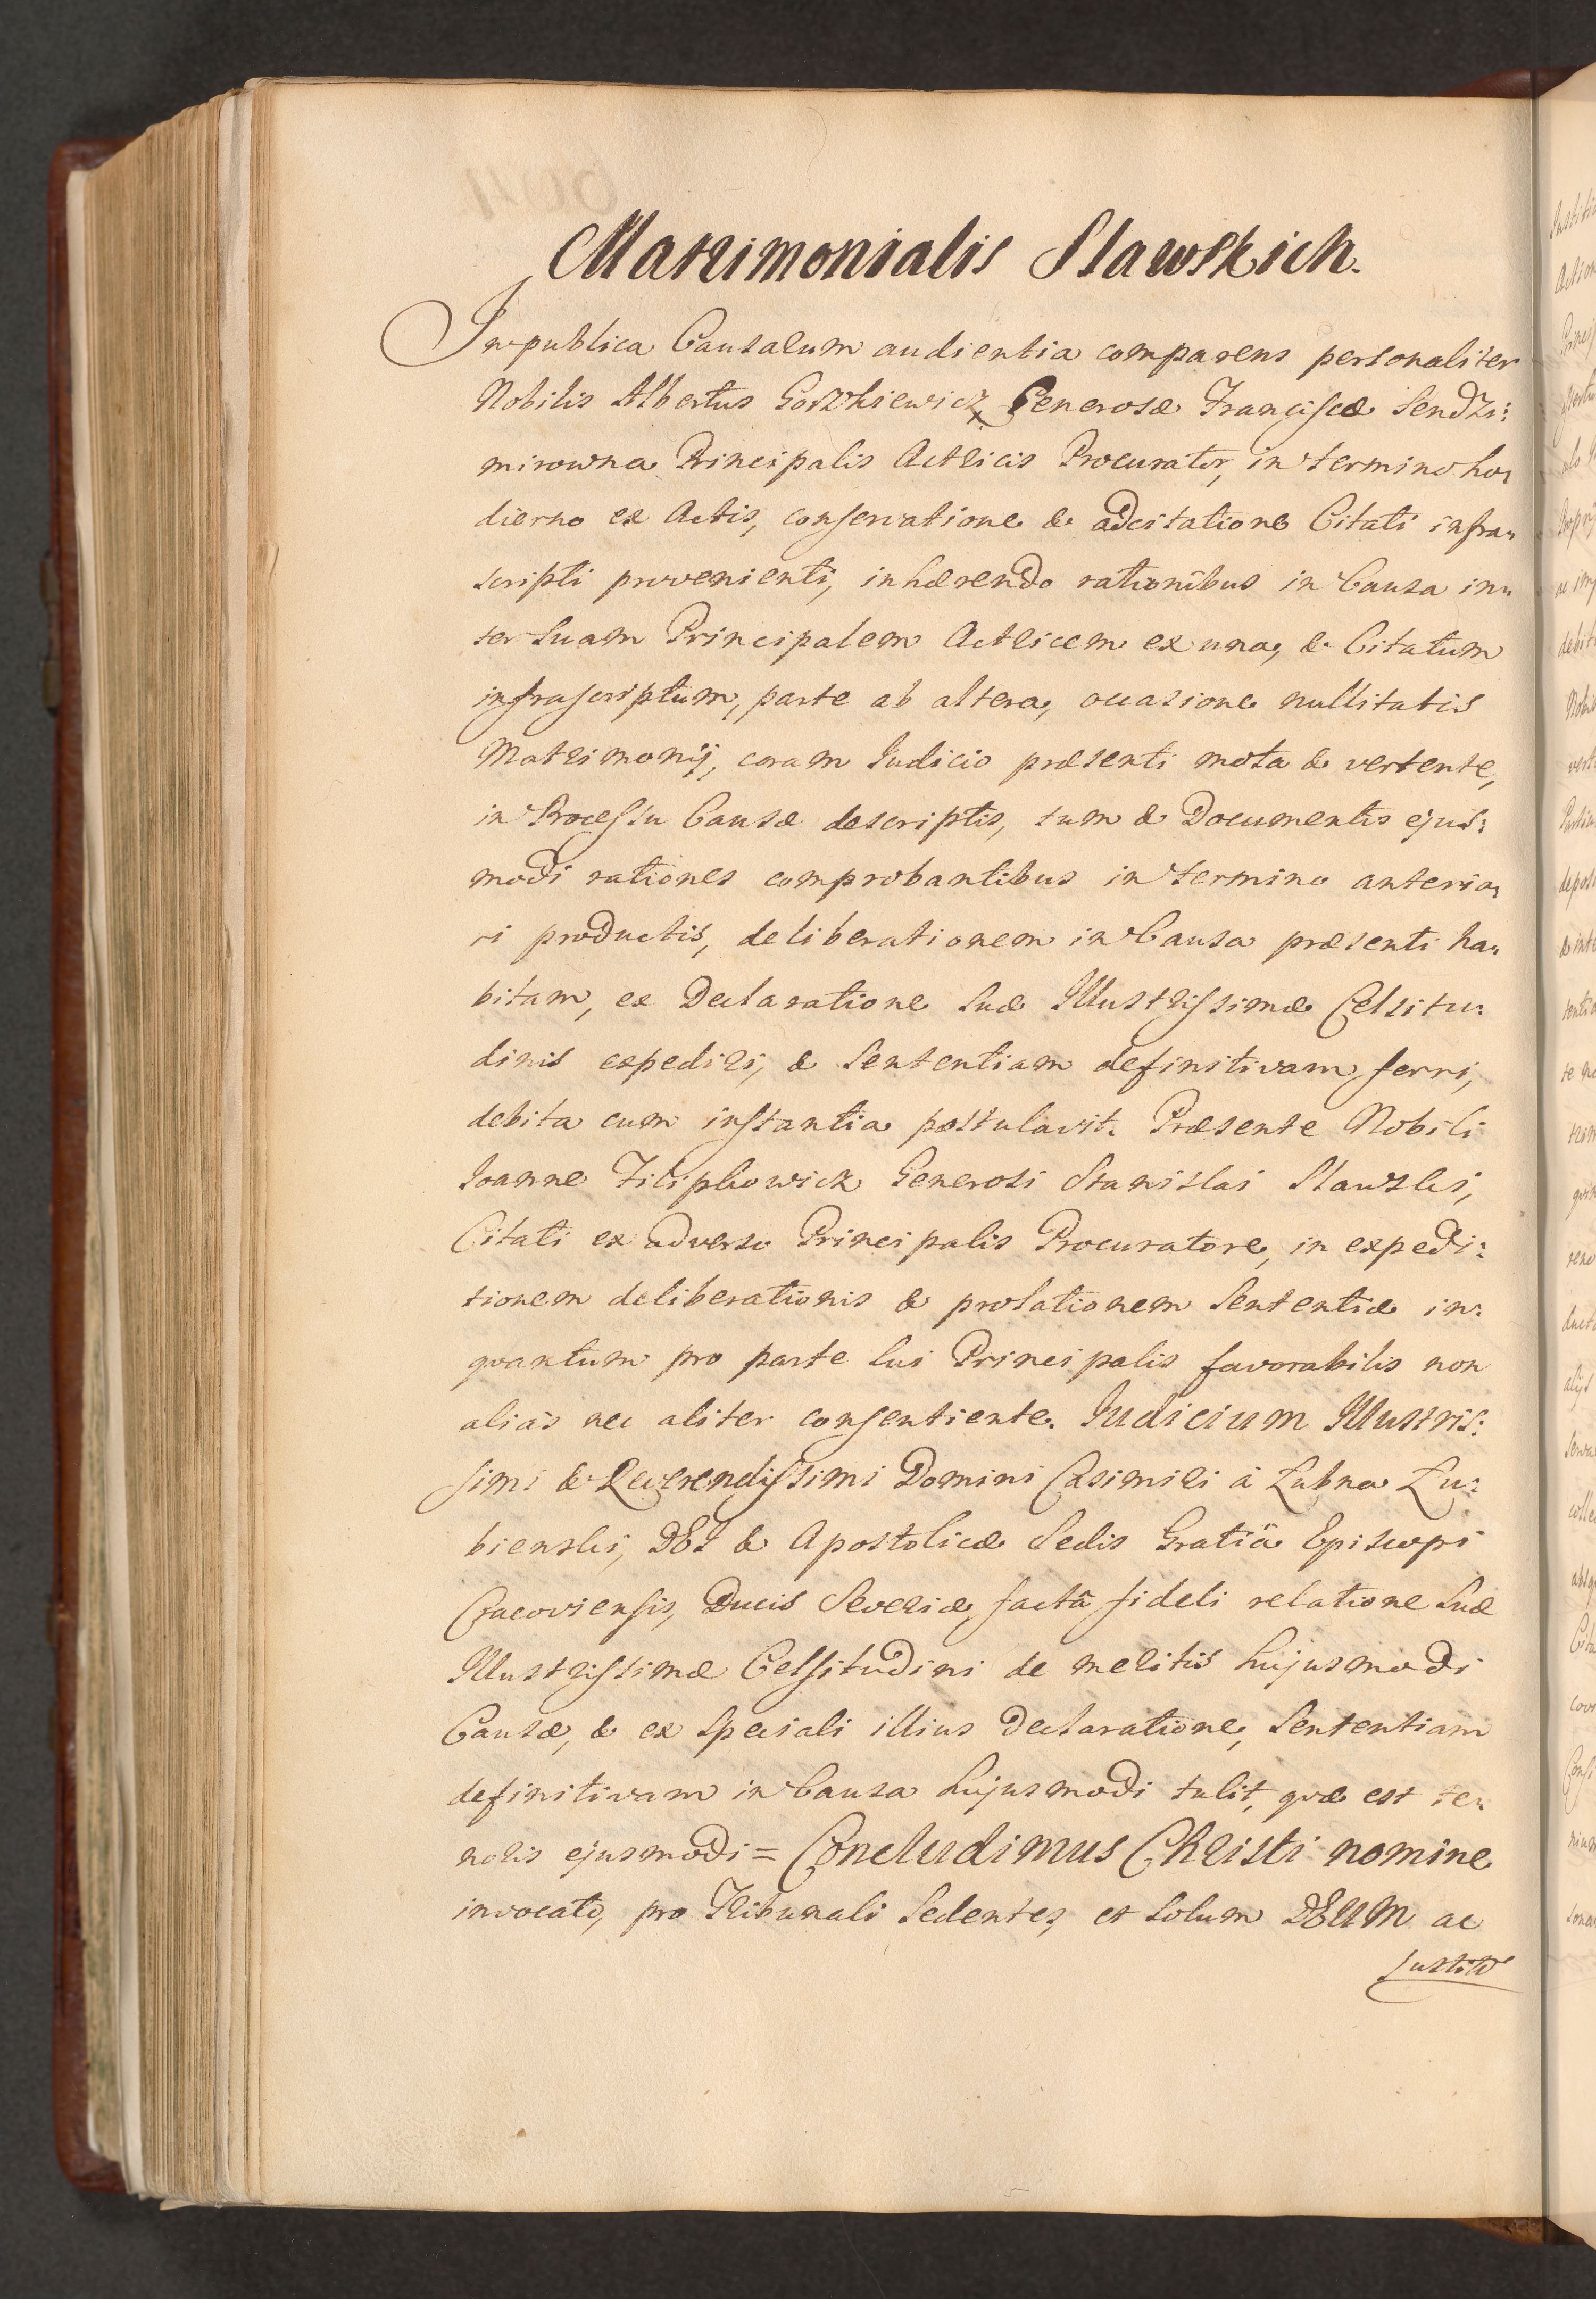 Matrimonialis Slawskich.
In publica Causarum audientia comparens personaliter
Nobilis Albertus Gorzkiewicz Generosæ Franciscæ Sendzi:
mirowna Principalis Actricis Procurator, in termino ho„
dierno ex Actis, conservatione & adcitatione Citati infra„
scripti provenienti, inhærendo rationibus in Causa in„
ter suam Principalem Actricem ex una, & Citatum
infrascriptum, parte ab altera, occasione nullitatis
Matrimonij, coram Iudicio præsenti mota & vertente,
in Processu Causæ descriptis, tum & Documentis ejus:
modi rationes comprobantibus in termino anterio„
ri productis, deliberationem in Causa præsenti ha„
bitam, ex Declaratione Suæ Illustrissimæ Celsitu:
dinis expediri, & Sententiam definitivam ferri,
debita cum instantia postulavit. Præsente Nobili
Ioanne Filipkowicz Generosi Stanislai Slawski,
Citati ex adverso Principalis Procuratore, in expedi:
tionem deliberationis & prolationem Sententiæ in:
quantum pro parte sui Principalis favorabilis non
aliàs nec aliter consentiente. Iudicium Illustris:
simi & Reverendissimi Domini Casimiri à Łubna Łu:
bienski, DEI & Apostolicæ Sedis Gratiâ Episcopi
Cracoviensis, Ducis Severiæ, factâ fideli relatione Suæ
Illustrissimæ Celsitudini de meritis hujusmodi
Causæ, & ex speciali illius Declaratione, Sententiam
definitivam in Causa hujusmodi tulit, quæ est te„
noris ejusmodi = Concludimus Christi nomine
invocato, pro Tribunali Sedentes, et Solum DEUM ac